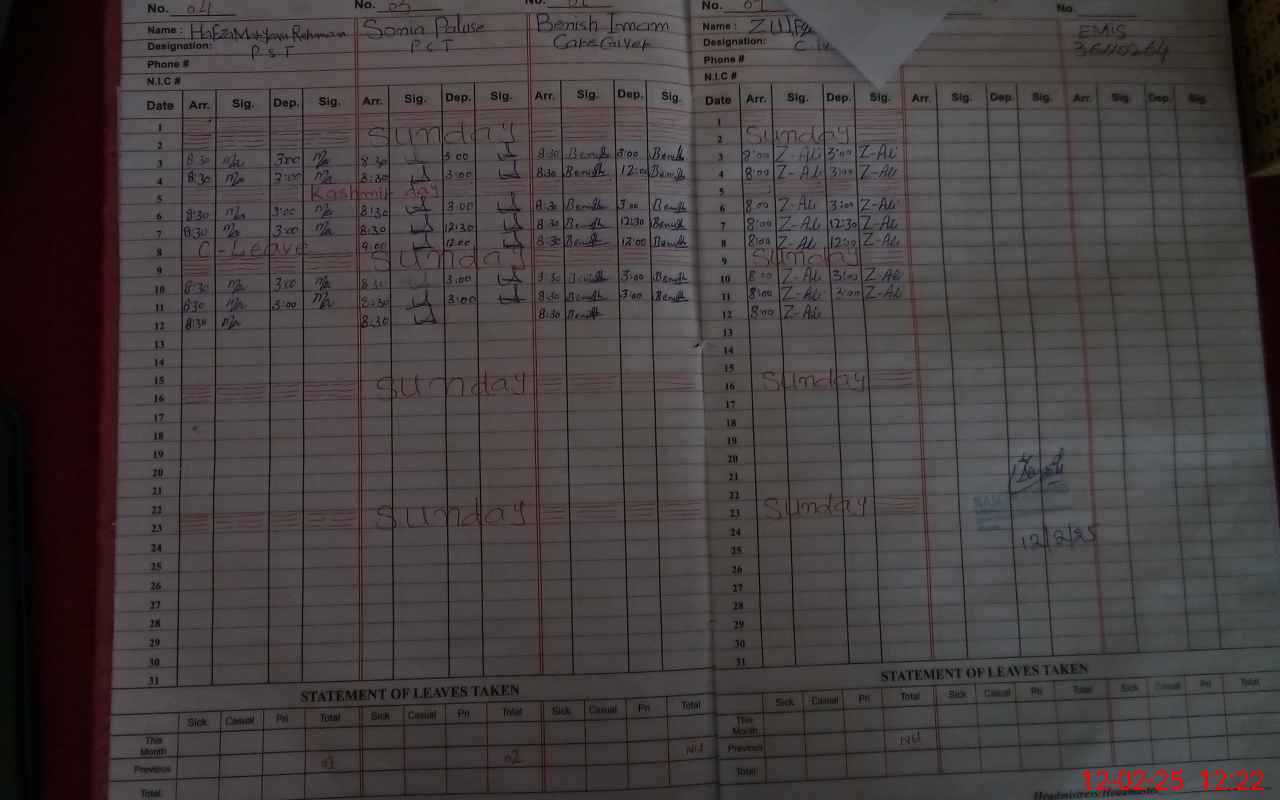 No. 04 No. 03 No.
Name : Hafza Maryam Rehman Sonia Benish Imam
Designation: P S T P S T Care Giver
Phone #
N.I.C #
Date Arr. Sig. Dep. Sig. Arr. Sig. Dep. Sig. Arr. Sig. Dep. Sig.
1
2 Sunday
3 8:30 3:00 8:30 3:00 8:30 Benish 3:00 Benish
4 8:30 3:00 8:30 3:00 8:30 Benish 12:00 Benish
5 Kashmir day
6 8:30 3:00 8:30 3:00 8:30 Benish 3:00 Benish
7 8:30 3:00 8:30 12:30 8:30 Benish 12:30 Benish
8 C-Leave 9:00 12:00 8:30 Benish 12:00 Benish
9 Sunday
10 8:30 3:00 8:30 3:00 8:30 Benish 3:00 Benish
11 8:30 3:00 8:30 3:00 8:30 Benish 3:00 Benish
12 8:30 8:30 8:30 Benish
13
14
15 Sunday
16
17
18
19
20
21
22 Sunday
23
24
25
26
27
28
29
30
31
STATEMENT OF LEAVES TAKEN
Sick Casual Pri Total Sick Casual Pri Total Sick Casual Pri Total
This Month
Previous 02 Nil
Total
No. No.
Name : EMIS
Designation: 
Phone #
N.I.C #
Date Arr. Sig. Dep. Sig. Arr. Sig. Dep. Sig. Arr. Sig. Dep. Sig.
1
2 Sunday
3 8:00 Z-Ali 3:00 Z-Ali
4 8:00 Z-Ali 3:00 Z-Ali
5
6 8:00 Z-Ali 3:00 Z-Ali
7 8:00 Z-Ali 12:30 Z-Ali
8 8:00 Z-Ali 12:00 Z-Ali
9 Sunday
10 8:00 Z-Ali 3:00 Z-Ali
11 8:00 Z-Ali 3:00 Z-Ali
12 8:00 Z-Ali
13
14
15
16 Sunday
17
18
19
20
21
22
23 Sunday
24 12/2/25
25
26
27
28
29
30
31
STATEMENT OF LEAVES TAKEN
Sick Casual Pri Total Sick Casual Pri Total Sick Casual Pri Total
This Month
Previous Nil
Total:
Headmistress/Headmaster
12-02-25 12:22